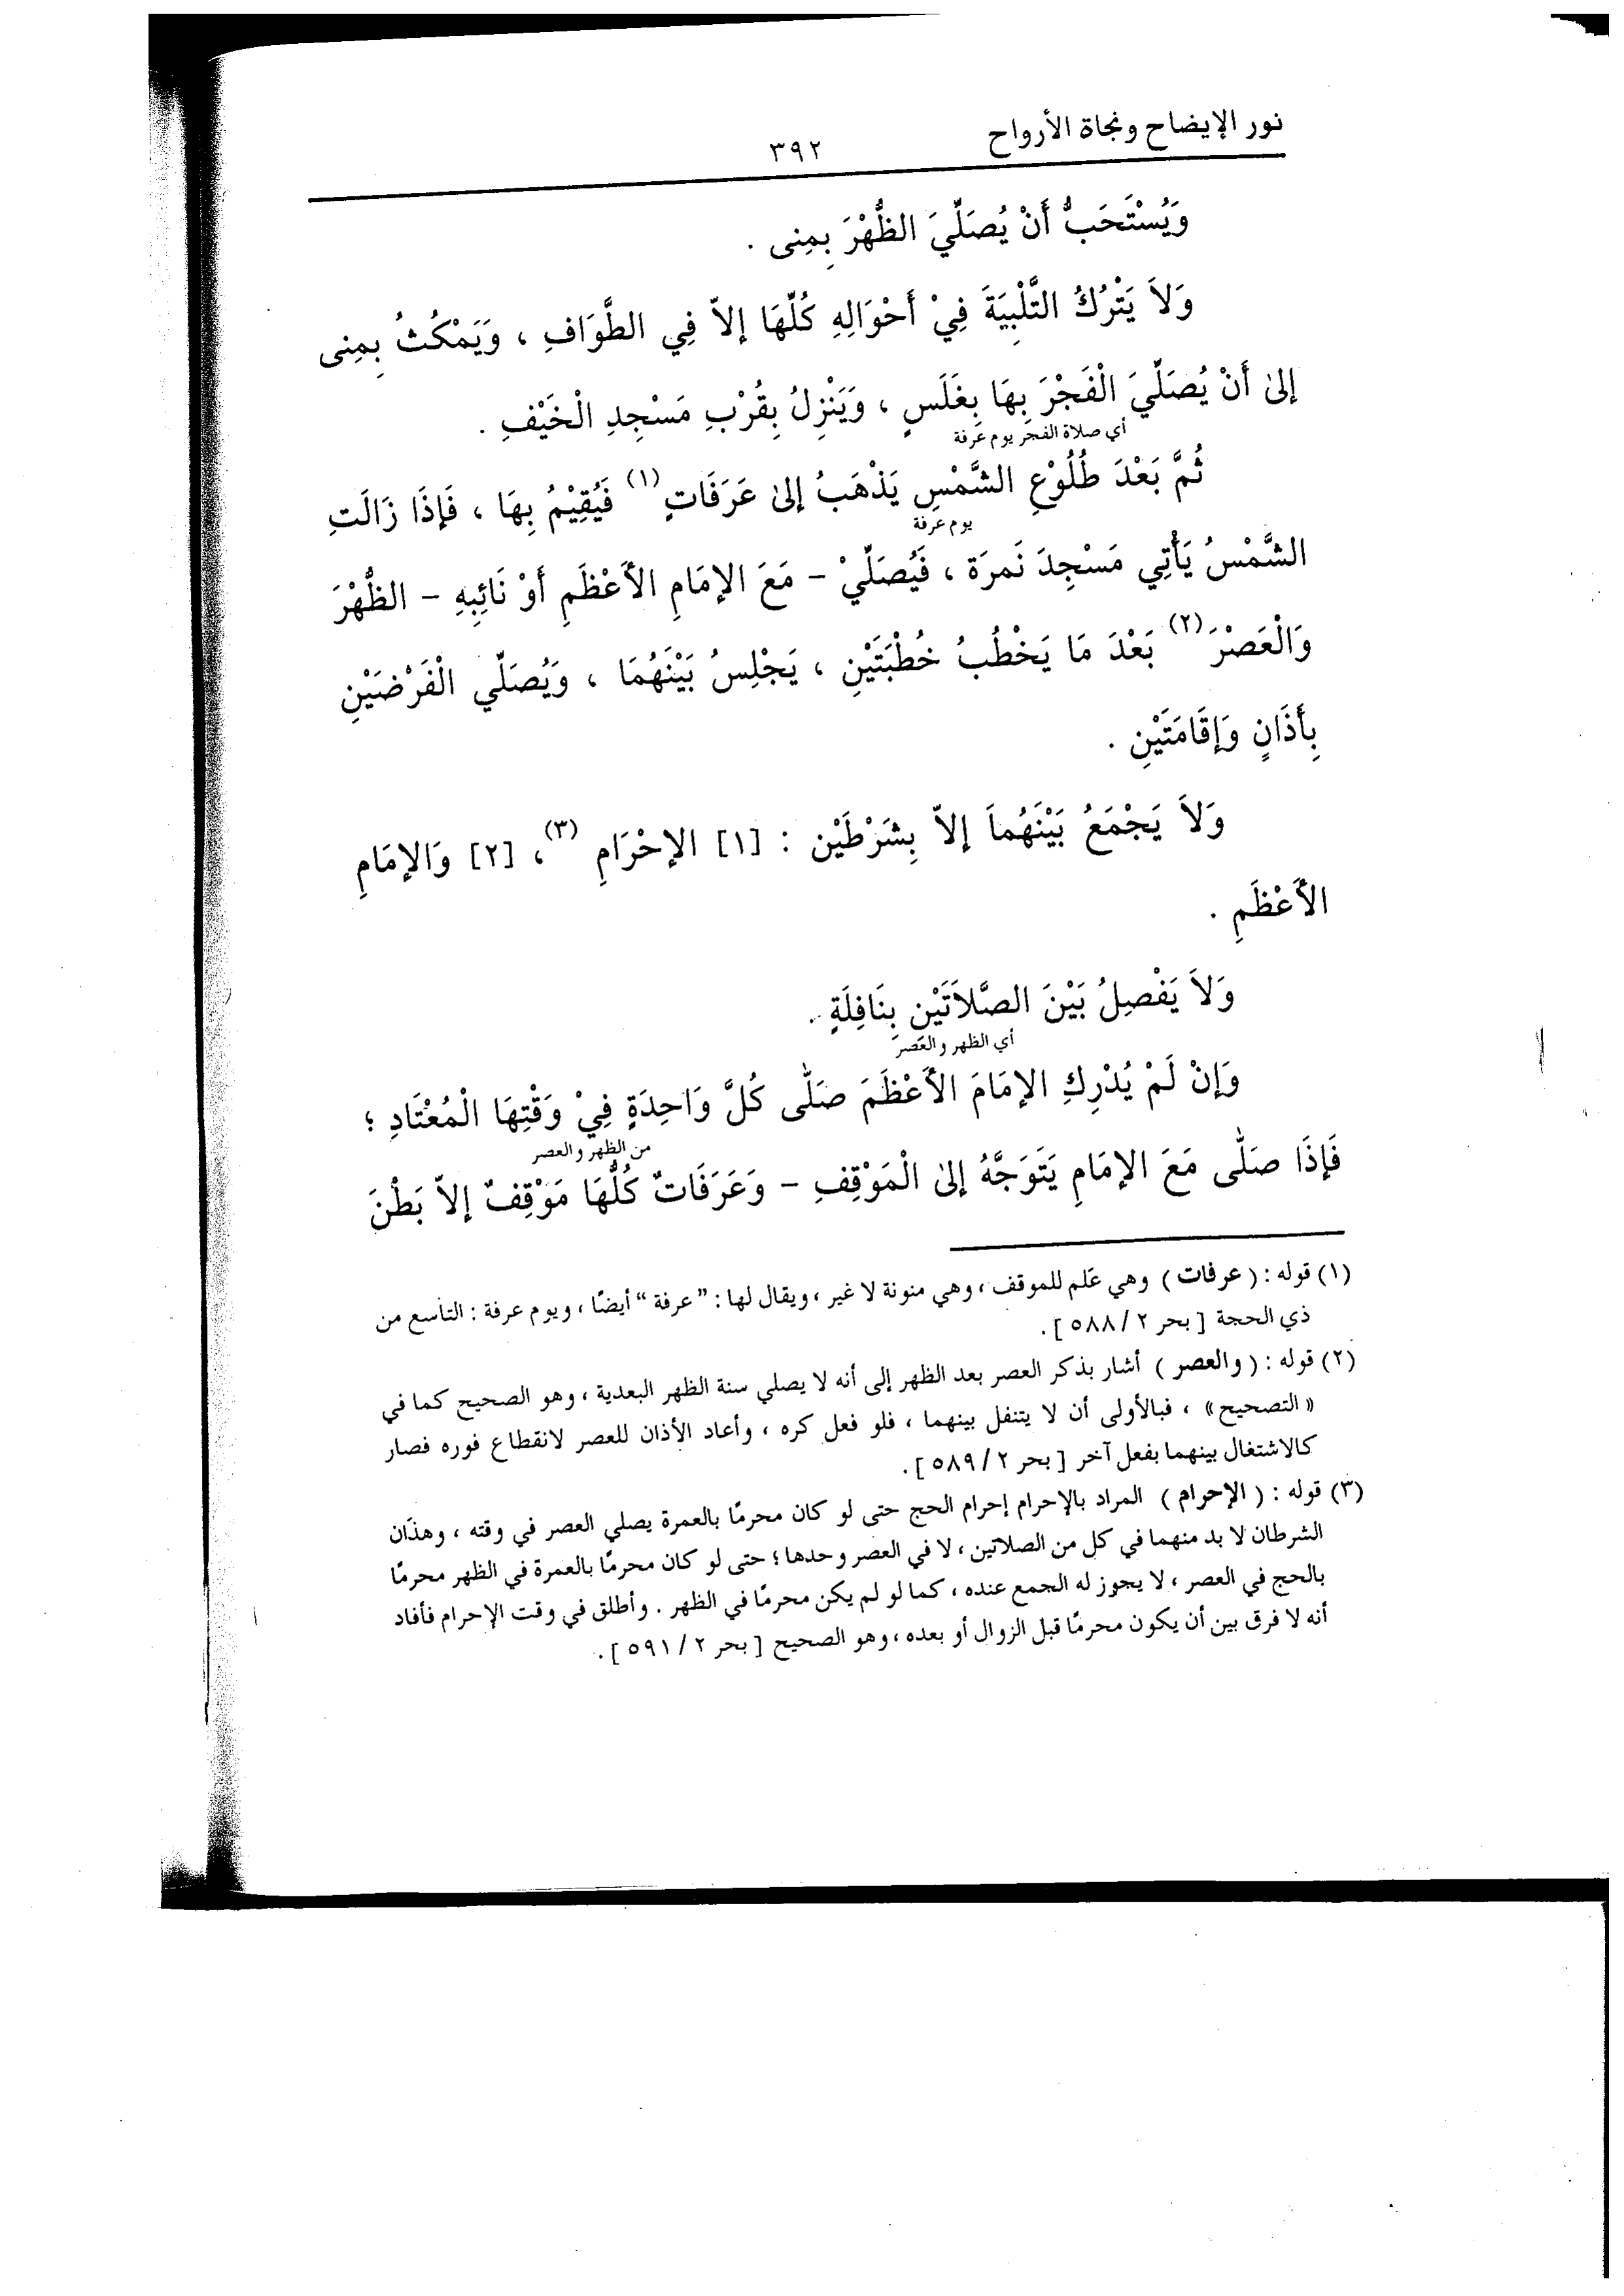 نور الإيضاح ونجاة الأرواح
٣٩٢
وَيُسْتَحَبُّ أَنْ يُصَلِّيَ الظُّهْرَ بِمِنى .
وَلاَ يَتْرُكُ التَّلْبِيَةَ فِيْ أَحْوَالِهِ كُلِّهَا إلاّ فِي الطَّوَافِ ، وَيَمْكُثُ بِمِنى
إلىٰ أَنْ يُصَلِّيَ الْفَجْرَ بِهَا بِغَلَسٍ ، وَيَنْزِلُ بِقُرْبِ مَسْجِدِ الْخَيْفِ .
أي صلاة الفجر يوم عرفة
ثُمَّ بَعْدَ طُلُوْعِ الشَّمْسِ يَذْهَبُ إلىٰ عَرَفَاتٍ (١) فَيُقِيْمُ بِهَا ، فَإذَا زَالَتِ
يوم عرفة
الشَّمْسُ يَأْتِي مَسْجِدَ نَمرَة ، فَيُصَلِّيْ – مَعَ الإمَامِ الأَعْظَمِ أَوْ نَائِبِهِ – الظُّهْرَ
وَالْعَصْرَ (٢) بَعْدَ مَا يَخْطُبُ خُطْبَتَيْنِ ، يَجْلِسُ بَيْنَهُمَا ، وَيُصَلِّي الْفَرْضَيْنِ
بِأَذَانٍ وَإقَامَتَيْنِ .
وَلاَ يَجْمَعُ بَيْنَهُماَ إلاّ بِشَرْطَيْن : [١] الإحْرَامِ (٣)، [٢] وَالإمَامِ
الأَعْظَمِ .
وَلاَ يَفْصِلُ بَيْنَ الصَّلاَتَيْنِ بِنَافِلَةٍ .
أي الظهر والعصر
وَإنْ لَمْ يُدْرِكِ الإمَامَ الأَعْظَمَ صَلّٰى كُلَّ وَاحِدَةٍ فِيْ وَقْتِهَا الْمُعْتَادِ ؛
من الظهر والعصر
فَإذَا صَلّٰى مَعَ الإمَامِ يَتَوَجَّهُ إلىٰ الْمَوْقِفِ – وَعَرَفَاتٌ كُلُّهَا مَوْقِفٌ إلاّ بَطْنَ
(١) قوله : ( عرفات ) وهي عَلم للموقف ، وهي منونة لا غير ، ويقال لها : ” عرفة “ أيضًا ، ويوم عرفة : التاسع من
ذي الحجة [ بحر ٢ / ٥٨٨ ] .
(٢) قوله : ( والعصر ) أشار بذكر العصر بعد الظهر إلى أنه لا يصلي سنة الظهر البعدية ، وهو الصحيح كما في
« التصحيح » ، فبالأولى أن لا يتنفل بينهما ، فلو فعل كره ، وأعاد الأذان للعصر لانقطاع فوره فصار
كالاشتغال بينهما بفعل آخر [ بحر ٢ / ٥٨٩ ] .
(٣) قوله : ( الإحرام ) المراد بالإحرام إحرام الحج حتى لو كان محرمًا بالعمرة يصلي العصر في وقته ، وهذان
الشرطان لا بد منهما في كل من الصلاتين ، لا في العصر وحدها ؛ حتى لو كان محرمًا بالعمرة في الظهر محرمًا
بالحج في العصر ، لا يجوز له الجمع عنده ، كما لو لم يكن محرمًا في الظهر . وأطلق في وقت الإحرام فأفاد
أنه لا فرق بين أن يكون محرمًا قبل الزوال أو بعده ، وهو الصحيح [ بحر ٢ / ٥٩١ ] .